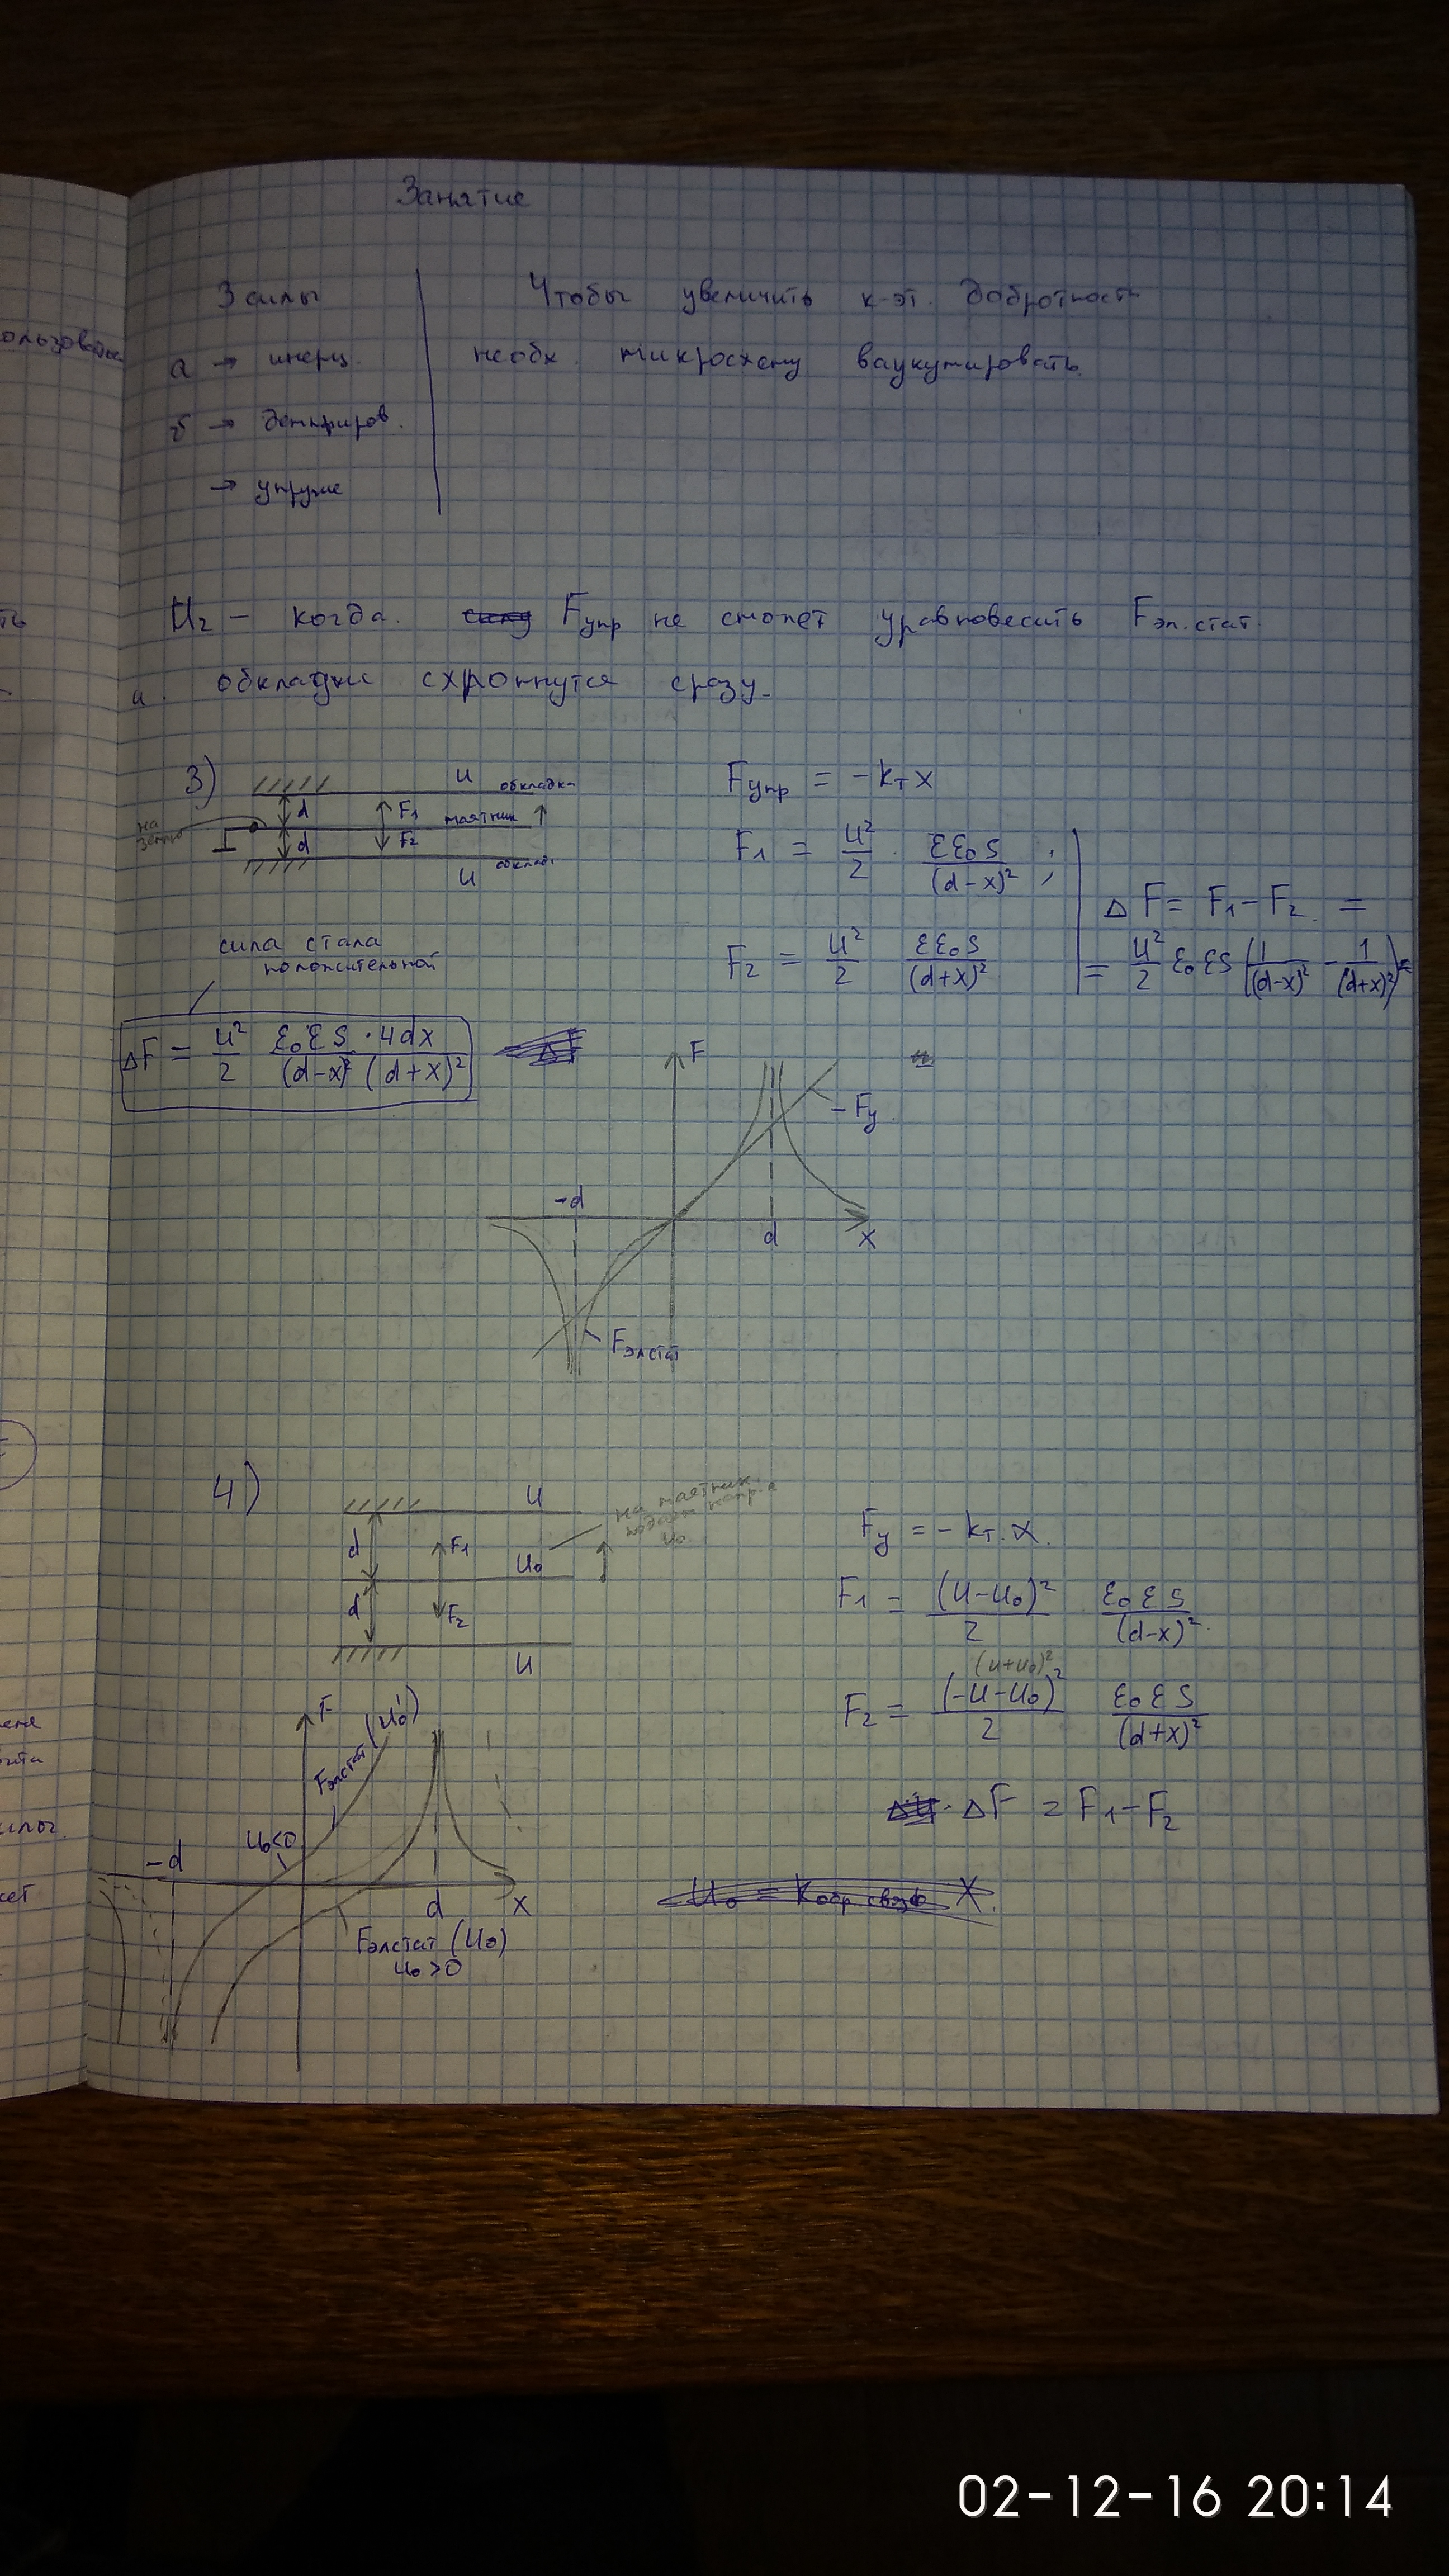 Занятие
3 силы
а → инерц.
б → демпфиров.
→ упругие
Чтобы увеличить к-эт. добротность
необх. микросхему вакуумировать.
U₂ – когда Fупр не сможет уравновесить Fэл.стат.
и обкладки схлопнутся сразу.
3)
U обкладка
d F₁ маятник
на землю
d F₂
U обклад.
Fупр = -kт x
F₁ = U²/2 · εε₀S/(d-x)² ;
F₂ = U²/2 εε₀S/(d+x)²
ΔF = F₁ - F₂ =
= U²/2 ε₀εS (1/(d-x)² - 1/(d+x)²) =
сила стала
положительной
ΔF = U²/2 ε₀εS·4dx/((d-x)²(d+x)²)
F
-Fу
-d
d
x
Fэлстат
4)
U
d F₁ U₀
на маятник
подаем напр-е
U₀.
d F₂
U
Fу = -kт·x.
F₁ = (U-U₀)²/2 ε₀εS/(d-x)²
(U+U₀)²
F₂ = (-U-U₀)²/2 ε₀εS/(d+x)²
ΔF = F₁-F₂
U₀ = Kобр связь X.
F
Fэлстат (U₀')
U₀<0
-d
d
x
Fэлстат (U₀)
U₀>0
02-12-16 20:14